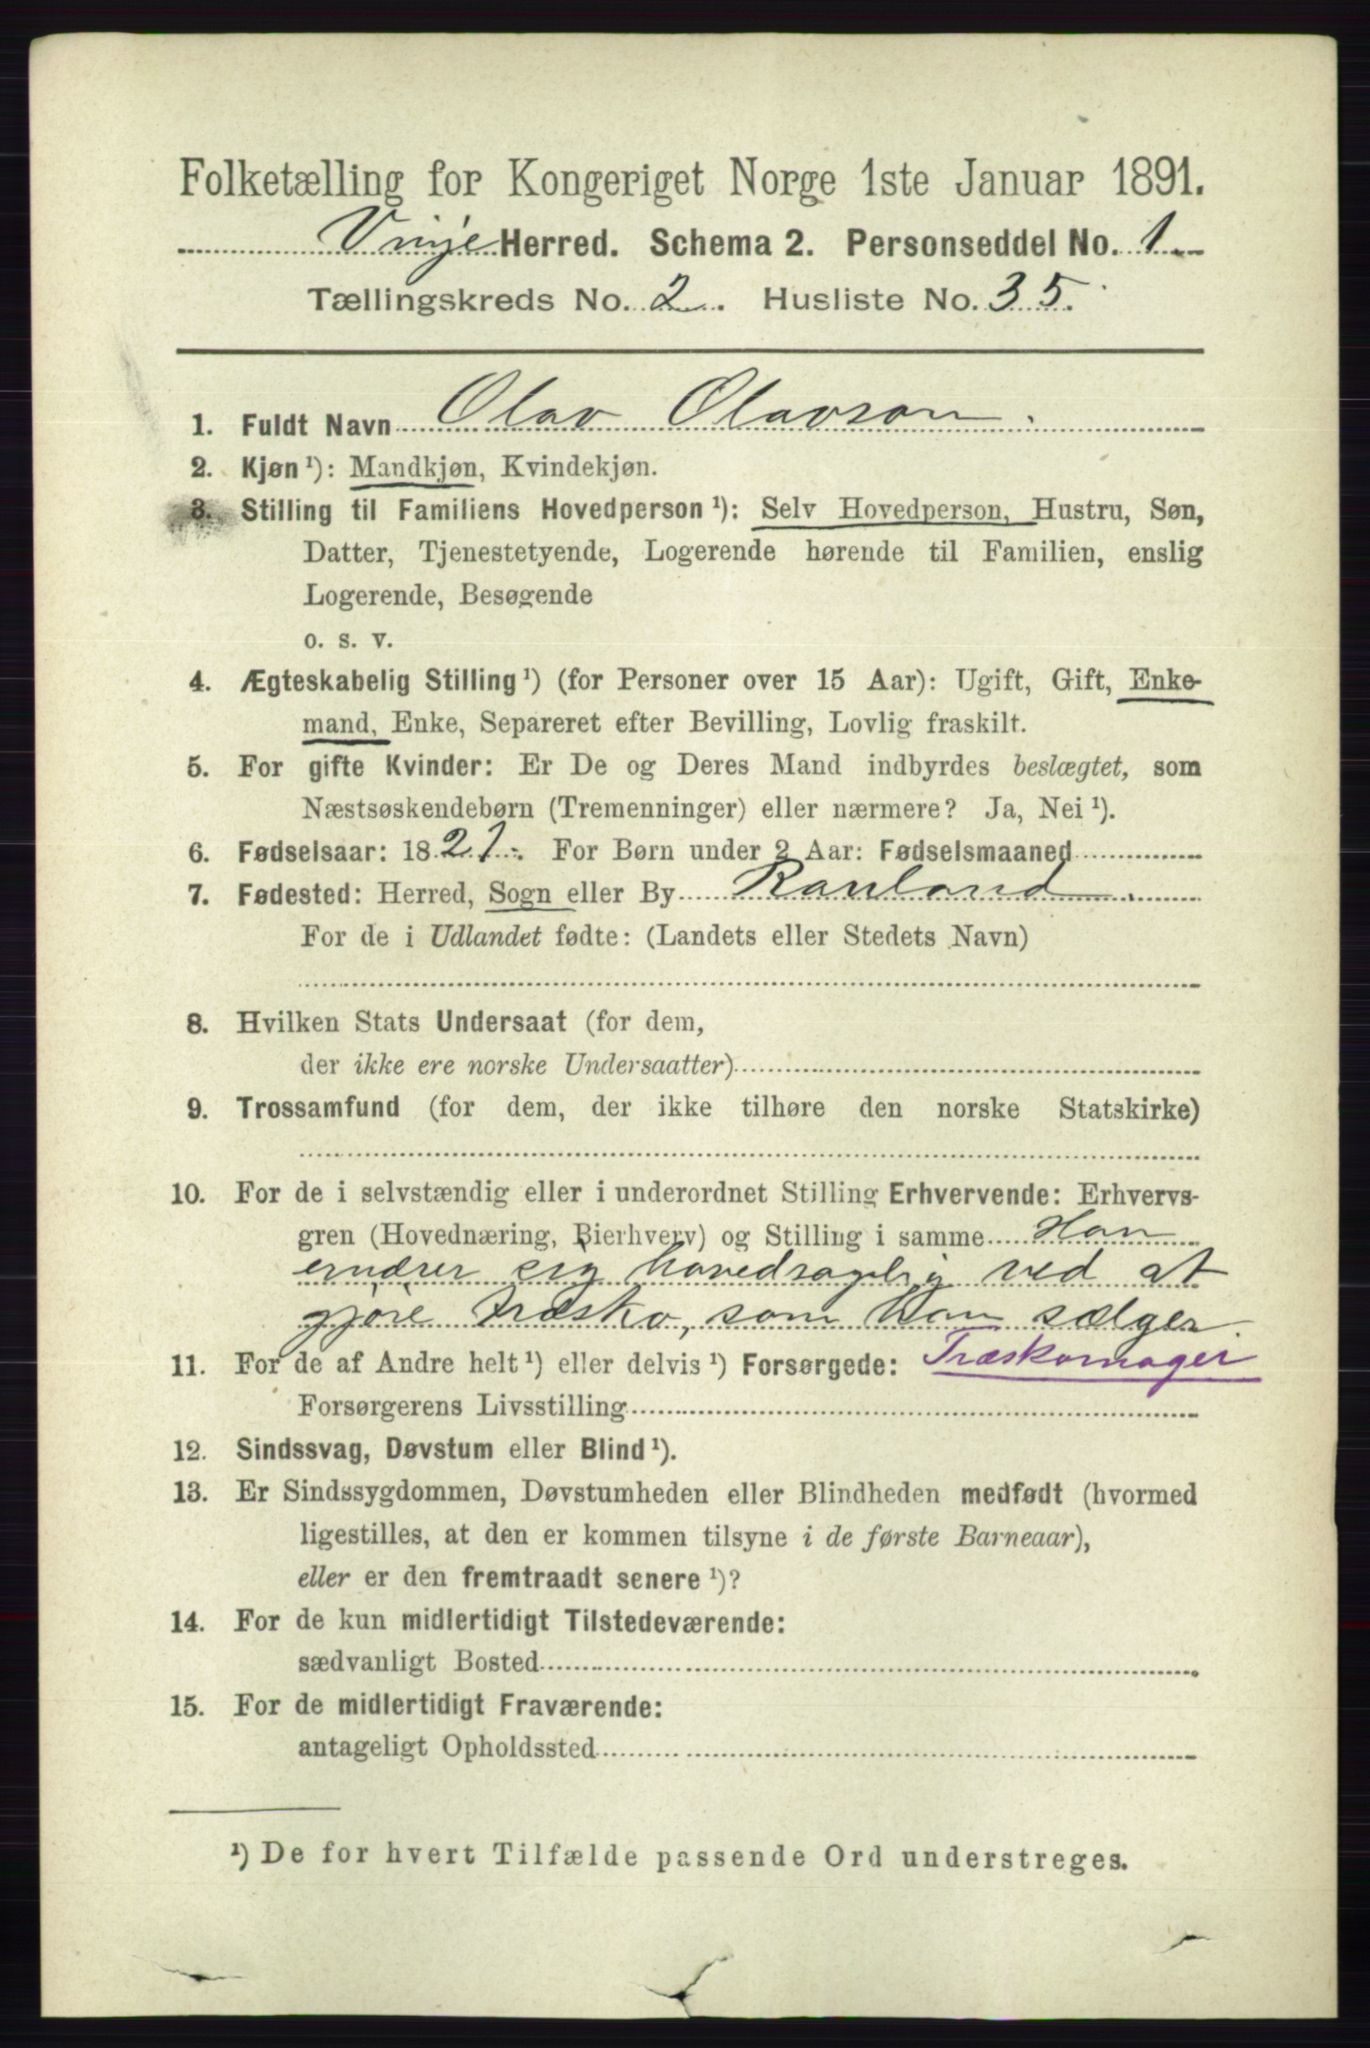 Folketælling for Kongeriget Norge 1ste Januar 1891.
Vinje Herred. Schema 2. Personseddel No. 1
Tællingskreds No. 2. Husliste No. 35.
1. Fuldt Navn Olav Olavson.
2. Kjøn ¹): Mandkjøn, Kvindekjøn.
3. Stilling til Familiens Hovedperson ¹): Selv Hovedperson, Hustru, Søn,
Datter, Tjenestetyende, Logerende hørende til Familien, enslig
Logerende, Besøgende
o. s. v.
4. Ægteskabelig Stilling ¹) (for Personer over 15 Aar): Ugift, Gift, Enke-
mand, Enke, Separeret efter Bevilling, Lovlig fraskilt.
5. For gifte Kvinder: Er De og Deres Mand indbyrdes beslægtet, som
Næstsøskendebørn (Tremenninger) eller nærmere? Ja, Nei ¹).
6. Fødselsaar: 1821. For Børn under 2 Aar: Fødselsmaaned
7. Fødested: Herred, Sogn eller By Rauland.
For de i Udlandet fødte: (Landets eller Stedets Navn)
8. Hvilken Stats Undersaat (for dem,
der ikke ere norske Undersaatter)
9. Trossamfund (for dem, der ikke tilhøre den norske Statskirke)
10. For de i selvstændig eller i underordnet Stilling Erhvervende: Erhvervs-
gren (Hovednæring, Bierhverv) og Stilling i samme Han
ernærer sig hovedsagelig ved at
gjøre træsko, som han sælger.
11. For de af Andre helt ¹) eller delvis ¹) Forsørgede: Træskomager
Forsørgerens Livsstilling
12. Sindssvag, Døvstum eller Blind ¹).
13. Er Sindssygdommen, Døvstumheden eller Blindheden medfødt (hvormed
ligestilles, at den er kommen tilsyne i de første Barneaar),
eller er den fremtraadt senere ¹)?
14. For de kun midlertidigt Tilstedeværende:
sædvanligt Bosted
15. For de midlertidigt Fraværende:
antageligt Opholdssted
¹) De for hvert Tilfælde passende Ord understreges.